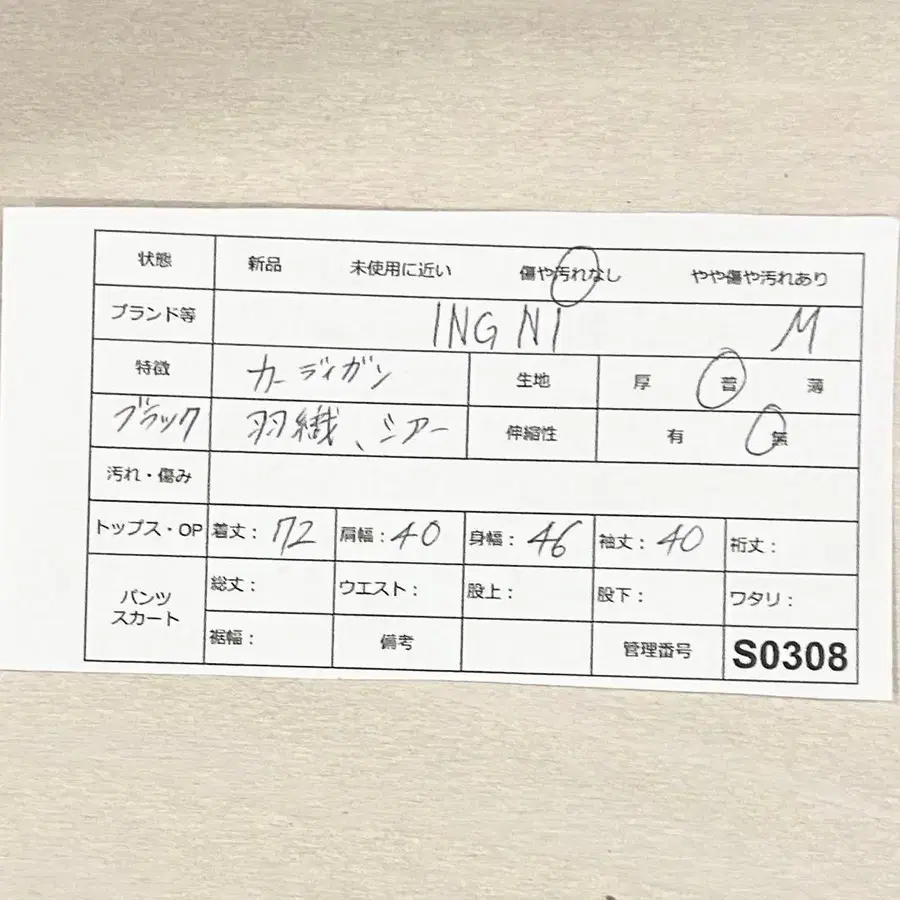 状態 新品 未使用に近い 傷や汚れなし やや傷や汚れあり
ブランド等 INGNI M
特徴 カーディガン 生地 厚 普 薄
ブラック 羽織、シアー 伸縮性 有 無
汚れ・傷み
トップス・OP 着丈: 72 肩幅: 40 身幅: 46 袖丈: 40 裄丈:
パンツ スカート 総丈: ウエスト: 股上: 股下: ワタリ:
裾幅: 備考 管理番号 S0308